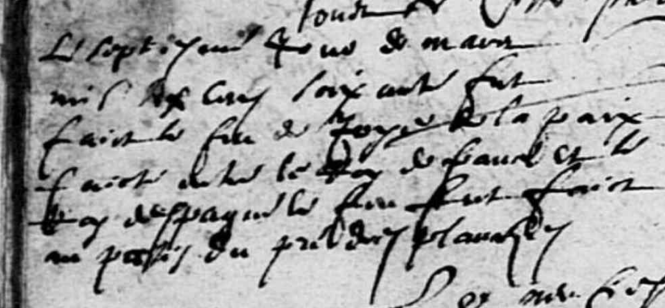 Le septiesme Jour de mars
mil six Cens soixante fut
faict le feu de Joye de la paix
faicte entre le Roy de france et le
Roy despagne le feu fut faict
au du pred des planches